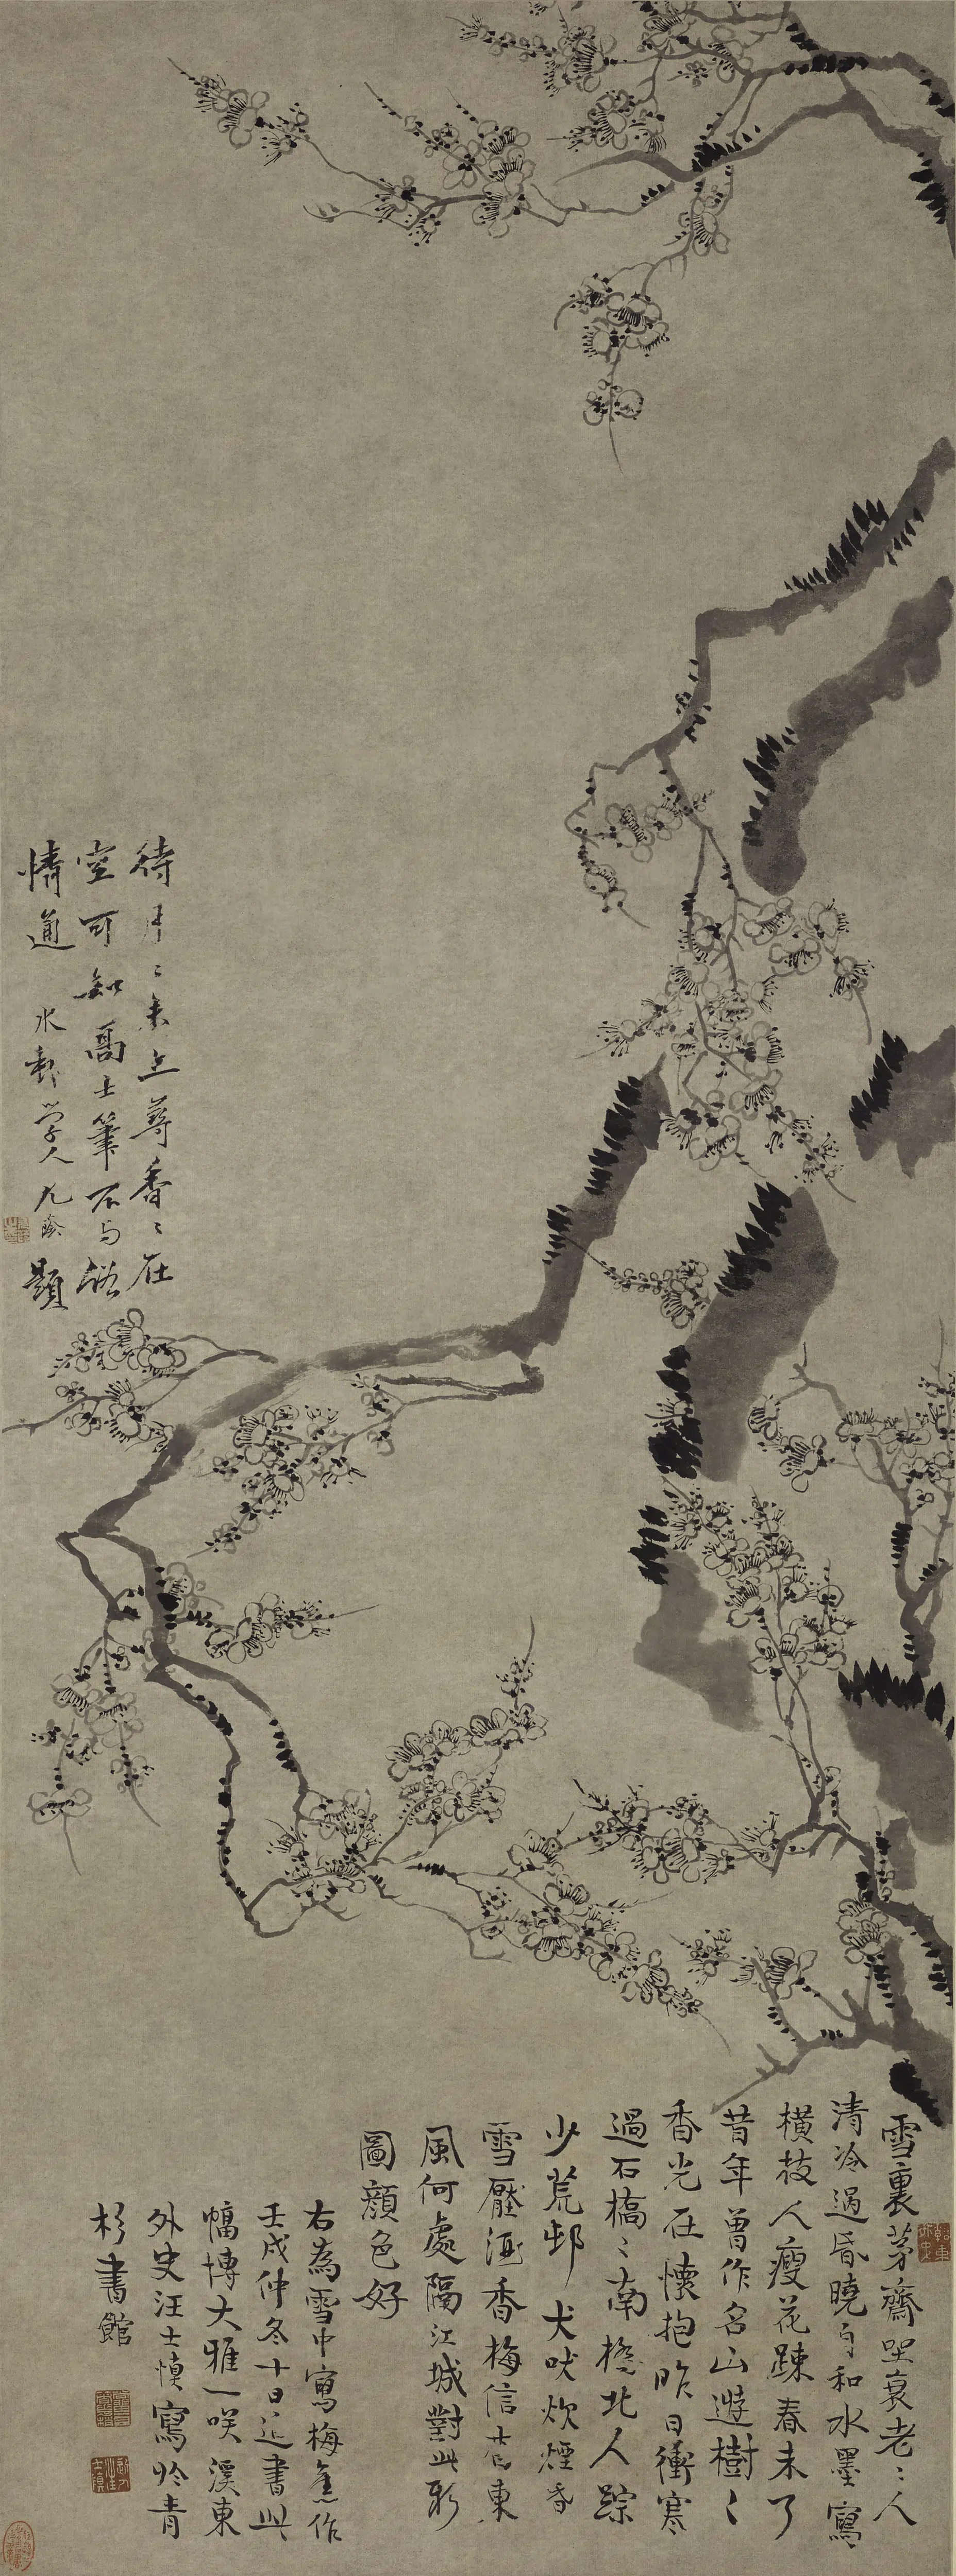 雪裏茅齋坐衰老〻人
清冷過昏曉自和水墨寫
橫枝人瘦花疎春未了
昔年曾作名山遊樹〻
香光在懷抱昨日衝寒
過石橋〻南橋北人踪
少荒邨犬吠炊煙昏
雪壓酒香梅信杳東
風何處隔江城對此新
圖顏色好
右為雪中寫梅舊作
壬戌仲冬十日近書此
幅博大雅一咲溪東
外史汪士慎寫於青
杉書館
待月〻未上尋香〻在
空可知高士筆不與俗
情通
水邨學人九陰題